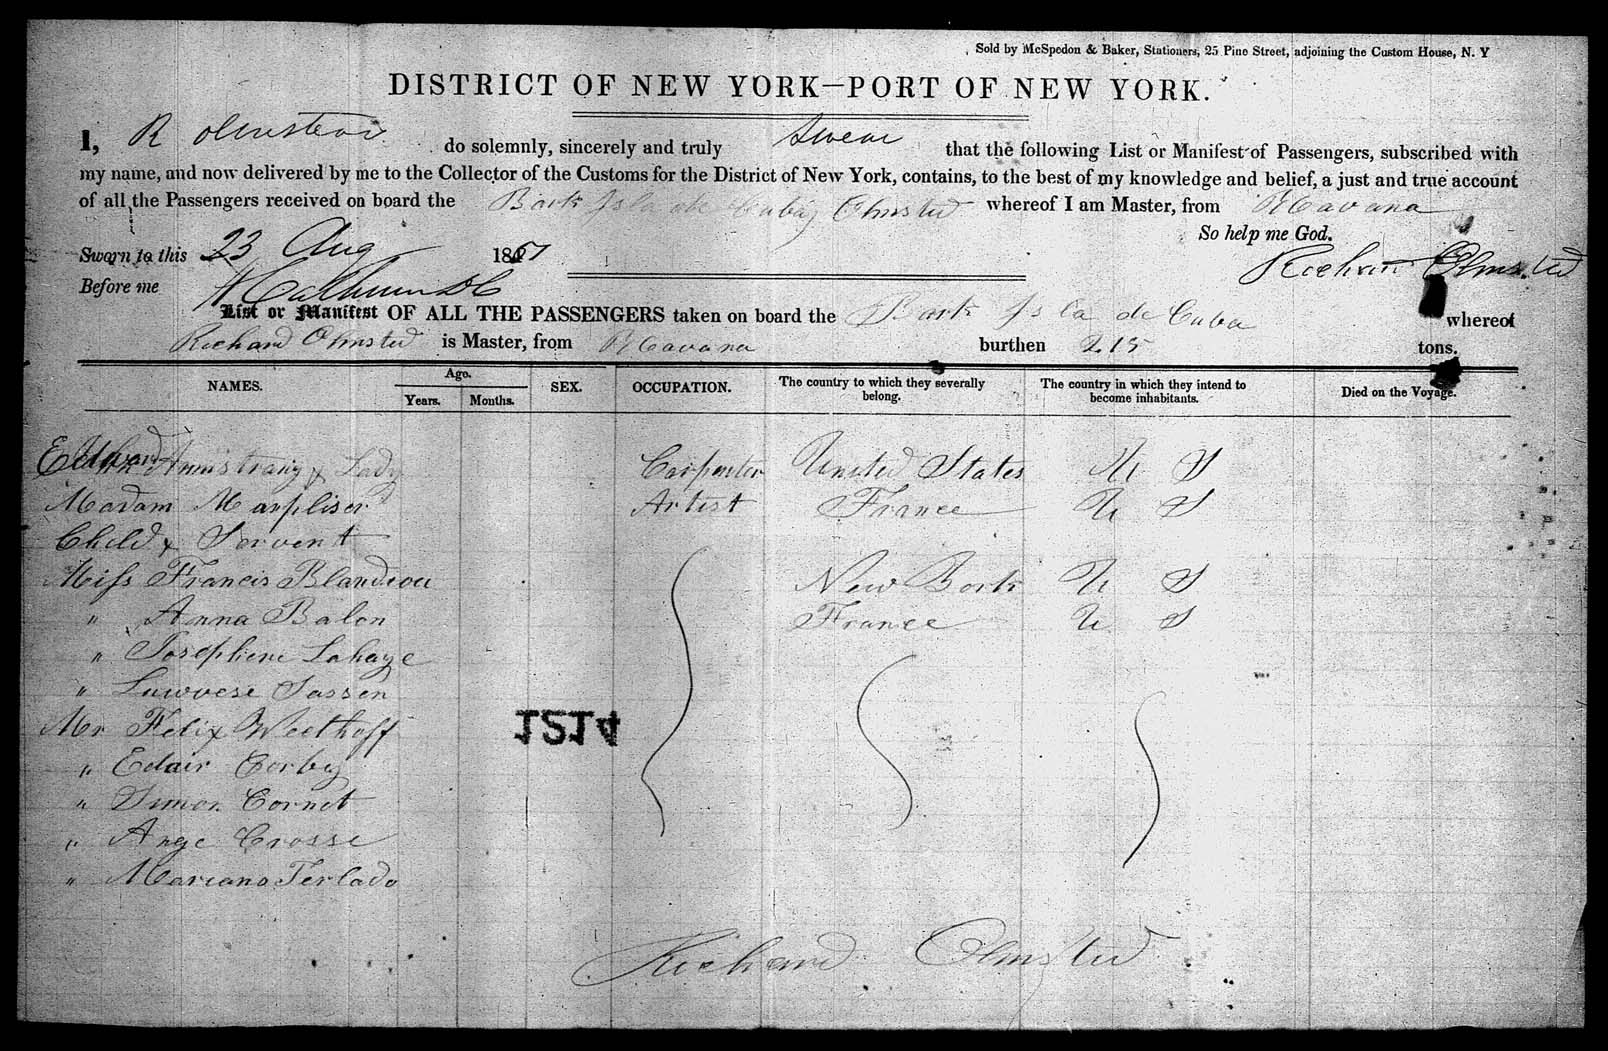 Sold by McSpedon & Baker, Stationers, 25 Pine Street, adjoining the Custom House, N. Y
DISTRICT OF NEW YORK—PORT OF NEW YORK.
I, R Olmstead do solemnly, sincerely and truly swear that the following List or Manifest of Passengers, subscribed with
my name, and now delivered by me to the Collector of the Customs for the District of New York, contains, to the best of my knowledge and belief, a just and true account
of all the Passengers received on board the Bark Isla de Cuba, Olmsted whereof I am Master, from Havana
So help me God.
Sworn to this 23 Aug 18
Richard Olmsted
Before me
List or Manifest OF ALL THE PASSENGERS taken on board the Bark Isla de Cuba whereof
Richard Olmsted is Master, from Havana burthen 215 tons.
NAMES. Age. Years. Months. SEX. OCCUPATION. The country to which they severally belong. The country in which they intend to become inhabitants. Died on the Voyage.
Edward Armstrong & Lady Carpenter United States U S
Madam Marpliser Artist France U S
Child & Servent
Miss Francis Blandeou New York U S
" Anna Balon France U S
" Josephine Lahaye
" Sassen
Mr Felix Weethoff
" Edair Corby
" Simon Cornet
" Ange Crosse
" Mariano Terlado
1514
Richard Olmsted